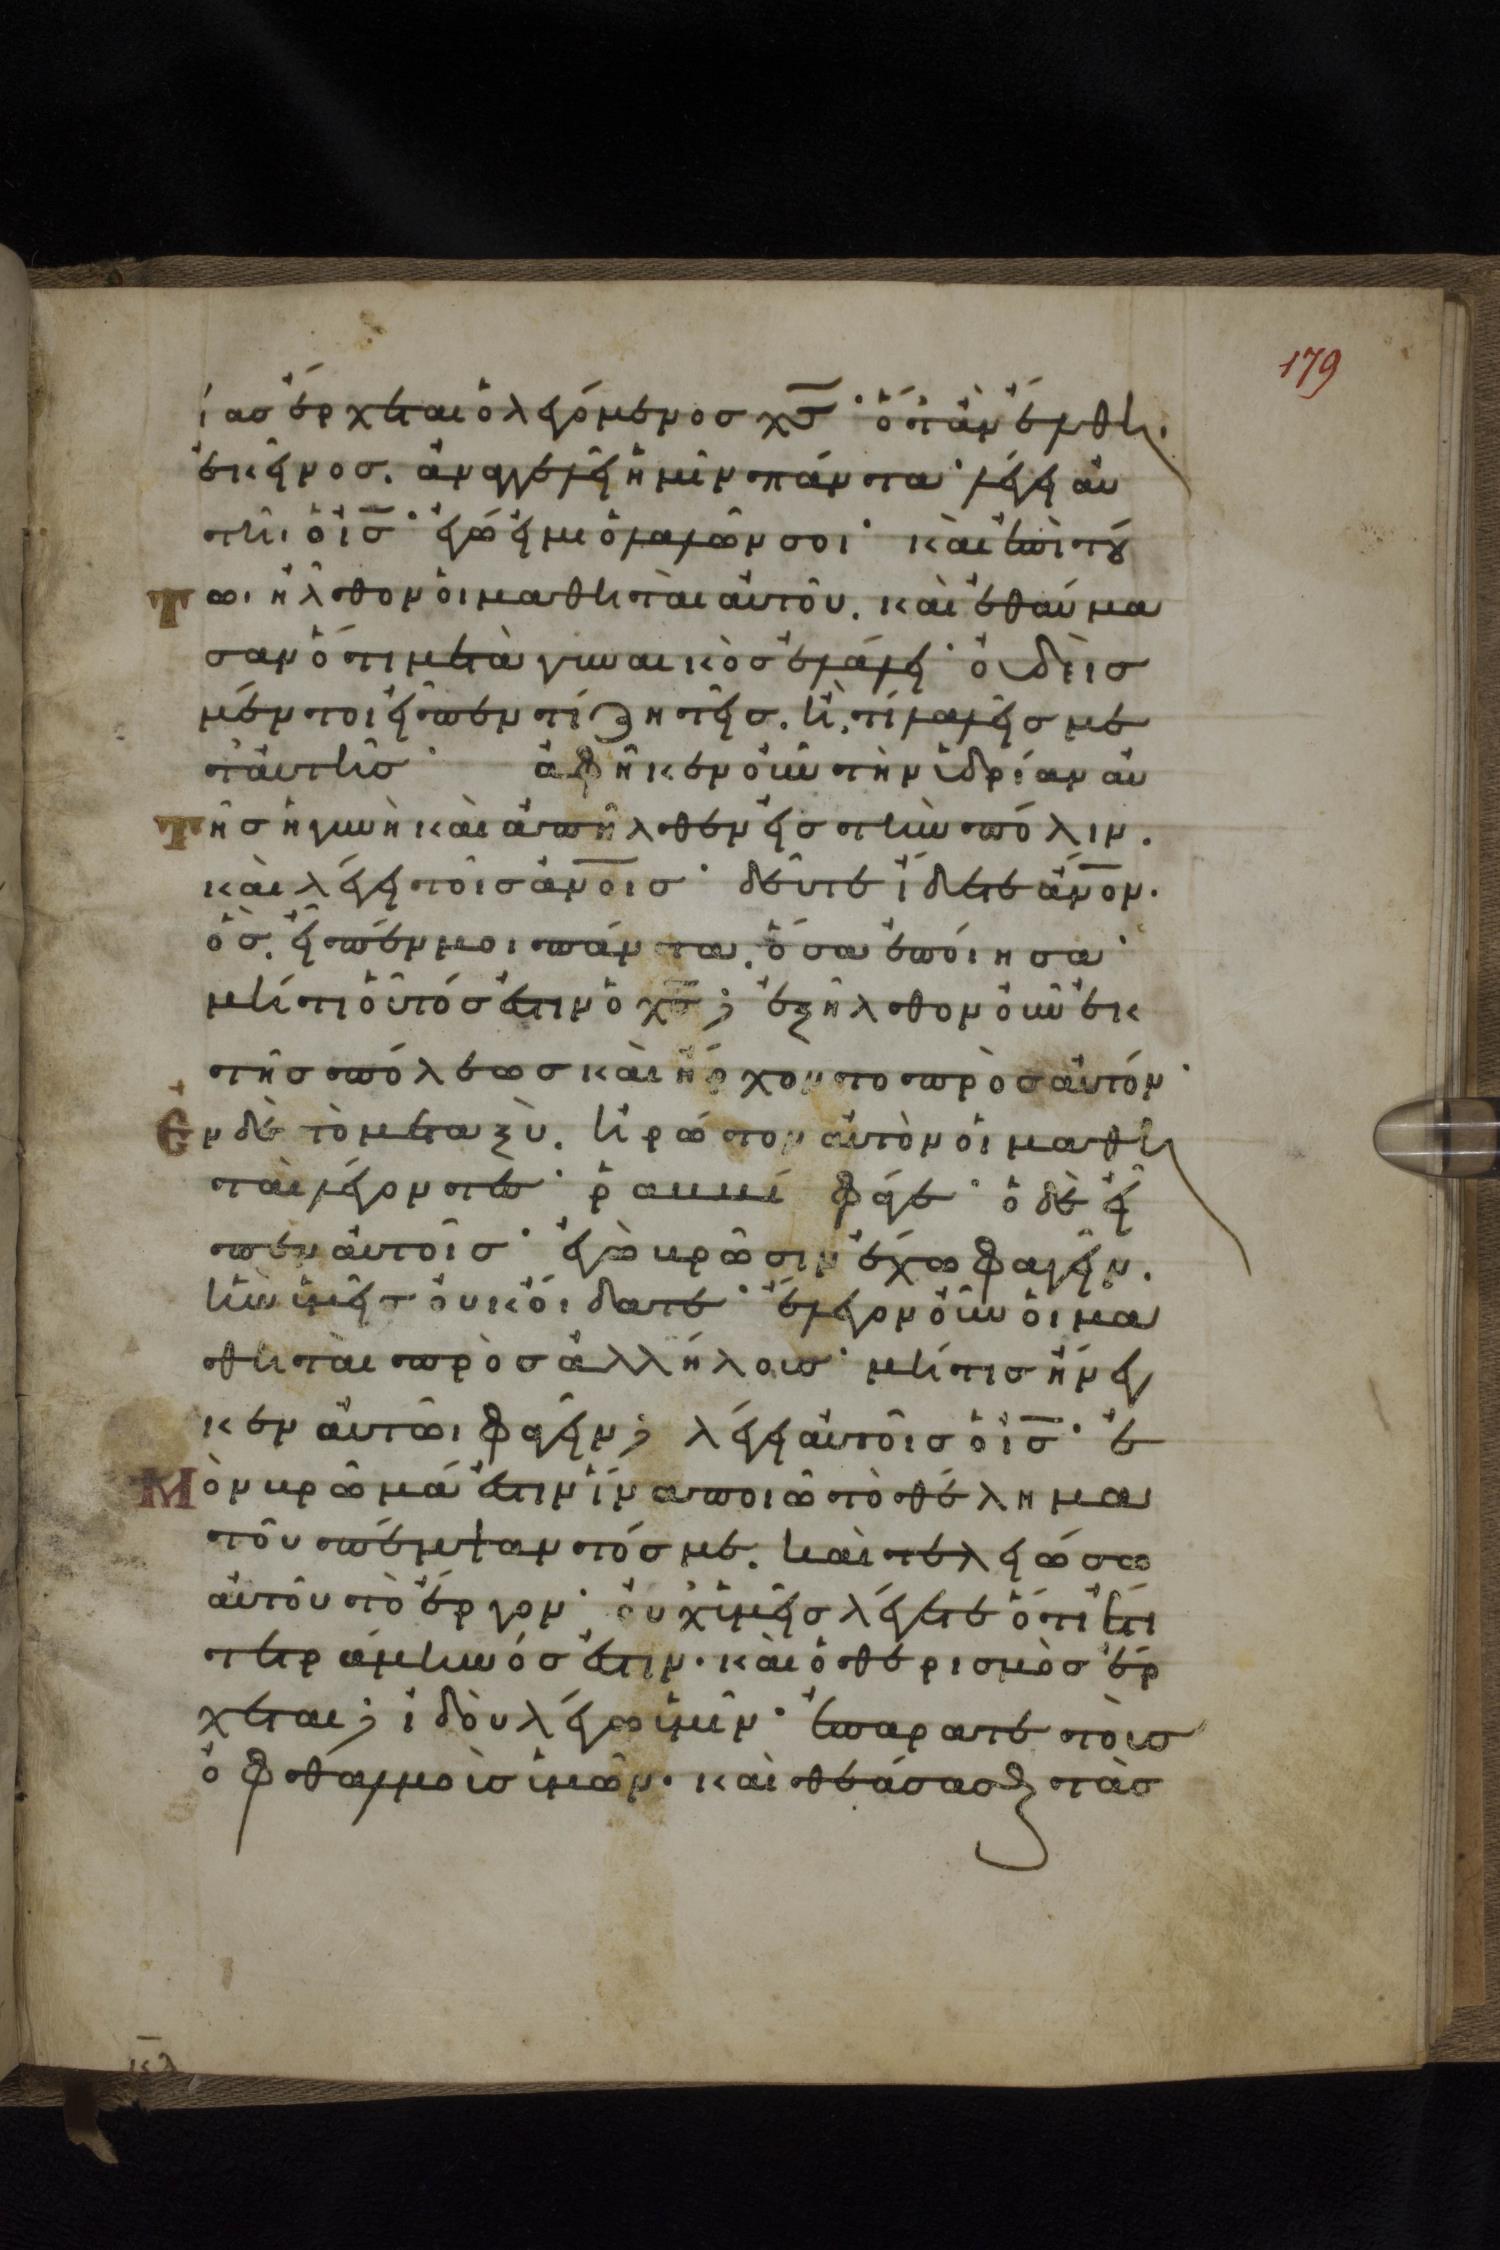 179
ίας ἔρχεται ὁ λεγόμενος χ̅ς̅· ὅταν ἔλθη·
ἐκεῖνος. ἀναγγελεῖ ἡμῖν πάντα· λέγει αὐ
τῆ· ὁ ι̅ς̅· ἐγώ εἰμι ὁ λαλῶν σοι· καὶ ἐπὶ τού
Τωι ἦλθον οἱ μαθηταὶ αὐτοῦ. καὶ ἐθαύμα
σαν ὅτι μετὰ γυναικὸς ἐλάλει· οὐδεὶς
μέντοι εἶπεν τί ζητεῖς. ἢ. τί λαλεῖς με
τ᾽αὐτῆς· ἀφῆκεν οὖν τὴν ὑδρίαν αὐ
Τῆς ἡ γυνὴ καὶ ἀπῆλθεν εἰς τὴν πόλιν.
καὶ λέγει τοῖς α̅ν̅ο̅ι̅ς̅· δεῦτε ἴδετε α̅ν̅ο̅ν̅.
ὃς. εἶπέν μοι πάντα. ὅσα ἐποίησα·
μήτι οὗτός ἐστιν ὁ χ̅ς̅; ἐξῆλθον οὖν ἐκ
τῆς πόλεως καὶ ἤρχοντο πρὸς αὐτόν·
Ἐν δὲ τὸ μεταξὺ. ἠρώτον αὐτὸν οἱ μαθη
ταὶ λέγοντες· ῥαββί φάγε· ὁ δὲ εἶ
πεν αὐτοῖς· ἐγὼ βρῶσιν ἔχω φαγεῖν.
ἣν ὑμεῖς οὐκ οἴδατε· ἔλεγον οὖν οἱ μα
θηταὶ πρὸς ἀλλήλους· μήτις ἤνεγ
κεν αὐτῶι φαγεῖν; λέγει αὐτοῖς ὁ ι̅ς̅· ἐ
Μὸν βρῶμά ἐστιν ἵνα ποιῶ τὸ θέλημα
τοῦ πέμψαντός με. καὶ τελειώσω
αὐτοῦ τὸ ἔργον· οὐχ ὑμεῖς λέγετε ὅτι ἔτι
τετράμηνός ἐστιν. καὶ ὁ θερισμὸς ἔρ
χεται; ἰδοὺ λέγω ὑμῖν· ἐπάρατε τοὺς
ὀφθαλμοὺς ὑμῶν. καὶ θεάσασθε τὰς